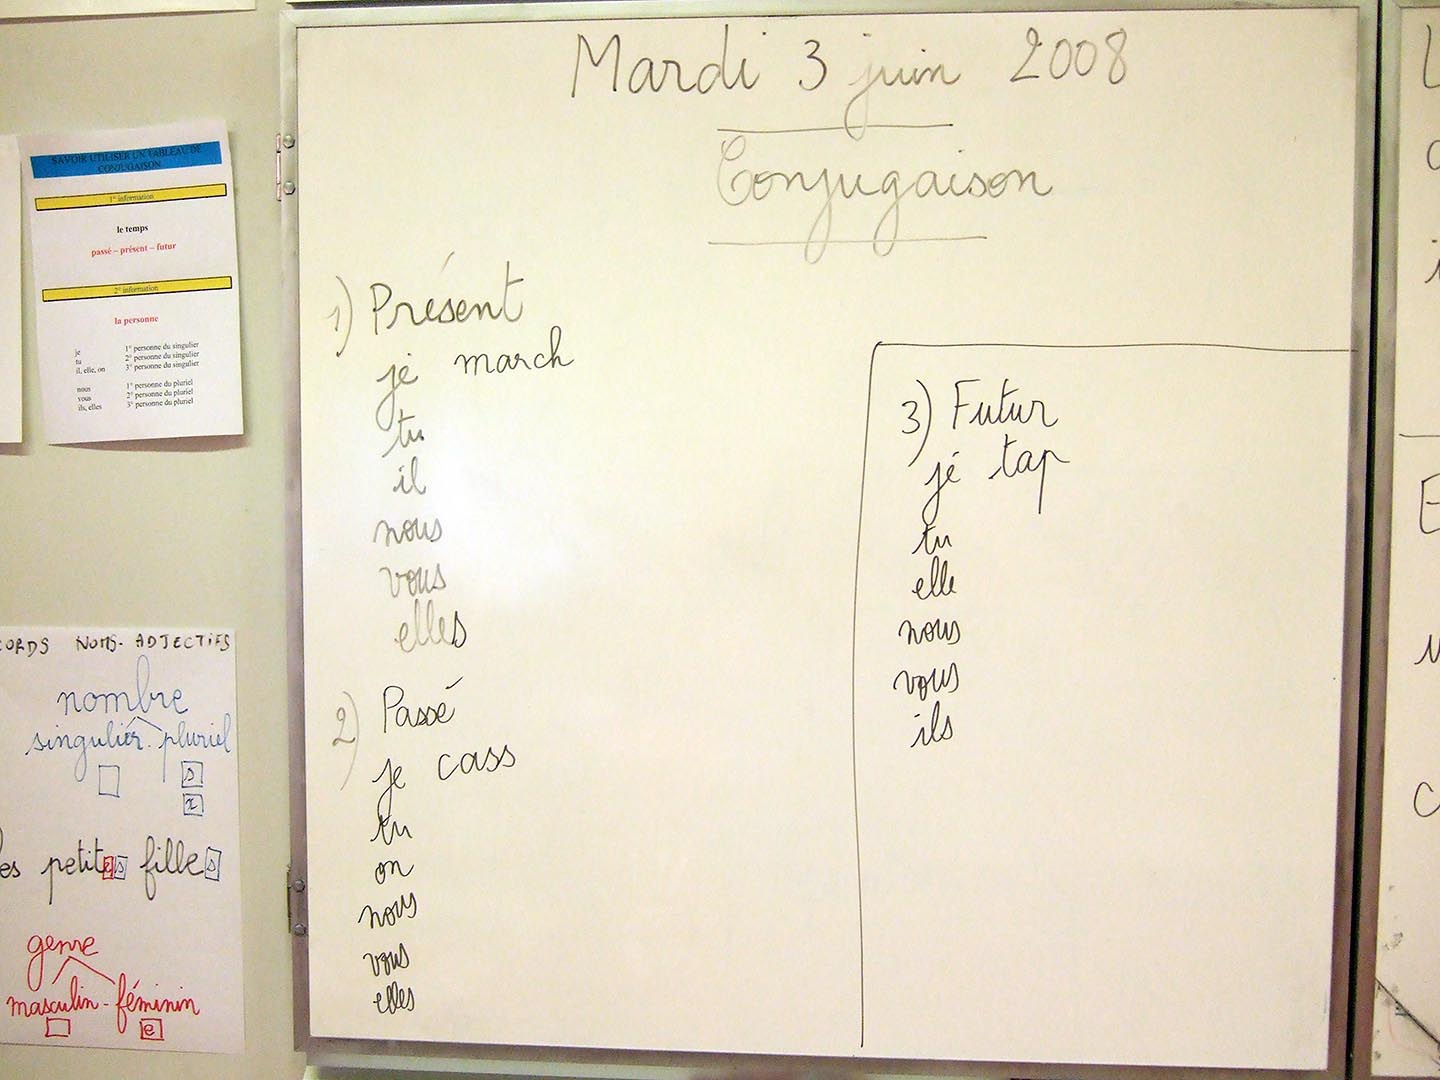 Mardi 3 juin 2008
Conjugaison
1) Présent
je march
tu
il
nous
vous
elles
2) Passé
je cass
tu
on
nous
vous
elles
3) Futur
je tap
tu
elle
nous
vous
ils
SAVOIR UTILISER UN TABLEAU DE
CONJUGAISON
1° information
le temps
passé – présent – futur
2° information
la personne
je 1° personne du singulier
tu 2° personne du singulier
il, elle, on 3° personne du singulier
nous 1° personne du pluriel
vous 2° personne du pluriel
ils, elles 3° personne du pluriel
CORDS NOMS-ADJECTIFS
nombre
singulier - pluriel
s
x
es petites filles
genre
masculin - féminin
e